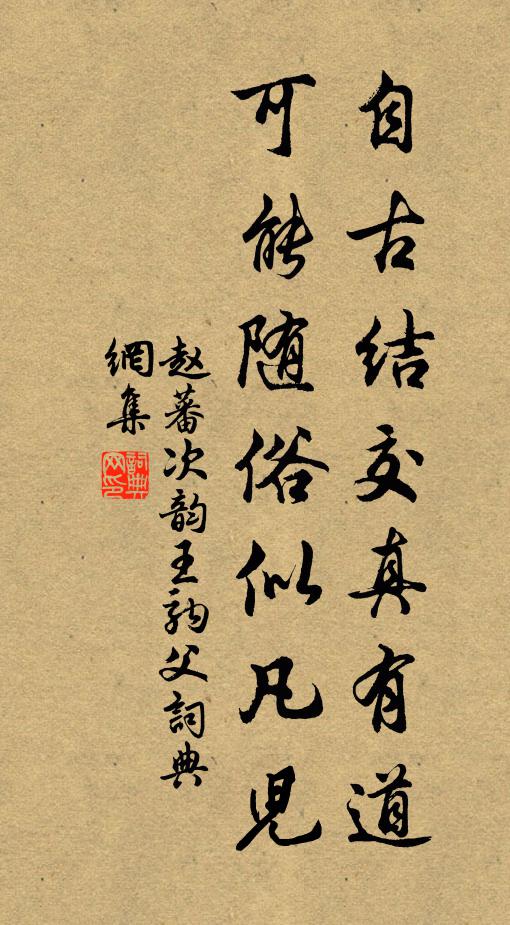 自古结交真有道
可能随俗似凡児
赵蕃次韵王驹父詞典
網集
詞典网印